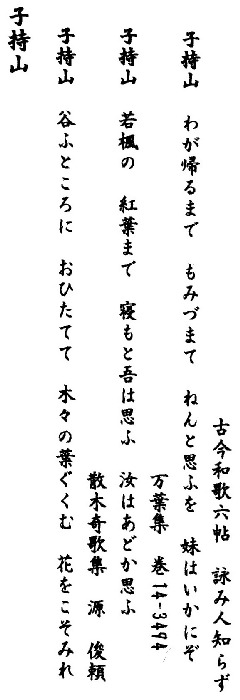 古今和歌六帖　詠み人知らず
子持山　わが帰るまで　もみづまて　ねんと思ふを　妹はいかにぞ
万葉集　巻14-3494
子持山　若楓の　紅葉まで　寝もと吾は思ふ　汝はあどか思ふ
散木奇歌集　源　俊頼
子持山　谷ふところに　おひたてて　木々の葉ぐくむ　花をこそみれ
子持山